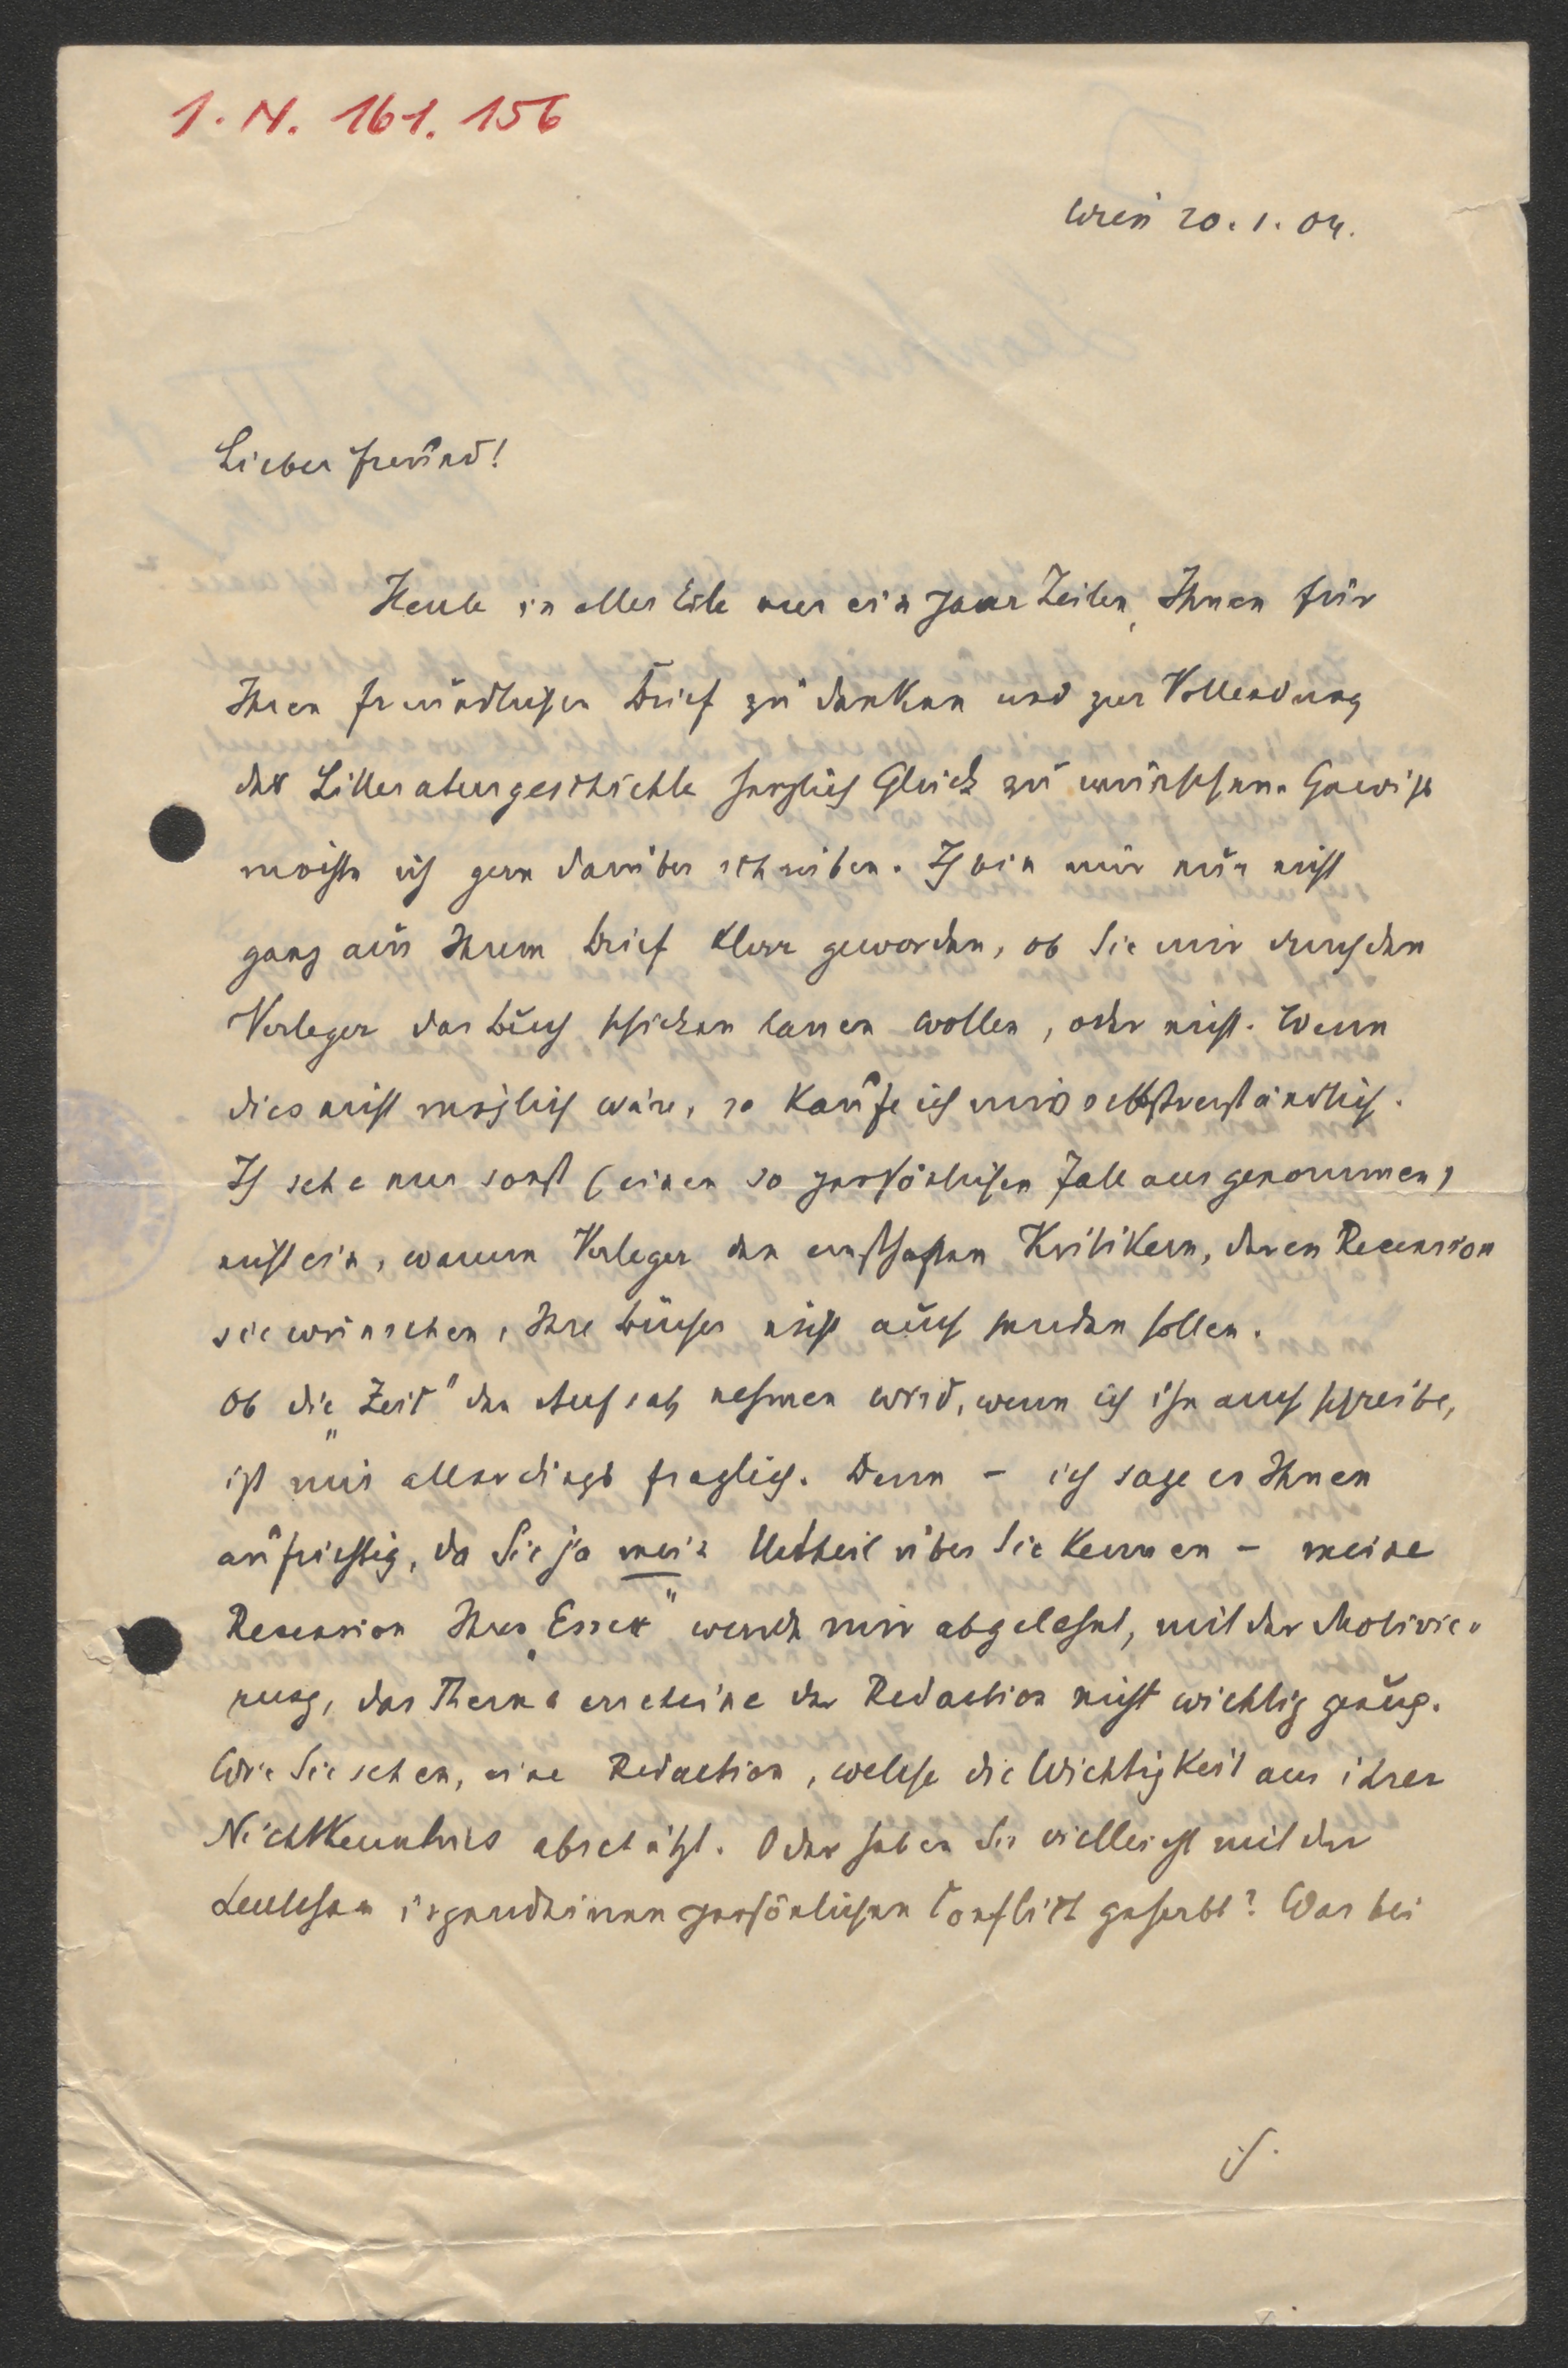 I. N. 161.156
Wien 20.1.04.
Lieber Freund!
Heute in aller Eile nur ein paar Zeilen, Ihnen für
Ihren freundlichen Brief zu danken und zur Vollendung
der Litteraturgeschichte herzlich Glück zu wünschen. Gewiß
möchte ich gern darüber schreiben. Ich bin mir nur nicht
ganz aus Ihrem Brief klar geworden, ob Sie mir durch den
Verleger das Buch schicken lassen wollen, oder nicht. Wenn
dies nicht möglich wäre, so kaufe ich mirs selbstverständlich.
Ich sehe nur sonst (einen so persönlichen Fall ausgenommen)
nicht ein, warum Verleger den ernsthaften Kritikern, deren Recension
sie wünschen, Ihre Bücher nicht auch senden sollen.
Ob die „Zeit" den Aufsatz nehmen wird, wenn ich ihn auch schreibe,
ist mir allerdings fraglich. Denn – ich sage es Ihnen
aufrichtig, da Sie ja mein Urtheil über Sie kennen – meine
Recension Ihres „Essex" wurde mir abgelehnt, mit der Motivie-
rung, das Thema erscheine der Redaction nicht wichtig genug.
Wie Sie sehen, eine Redaction, welche die Wichtigkeit aus ihrer
Nichtkenntnis abschätzt. Oder haben Sie vielleicht mit den
Leutchen irgendeinen persönlichen Conflict gehabt? Was bei